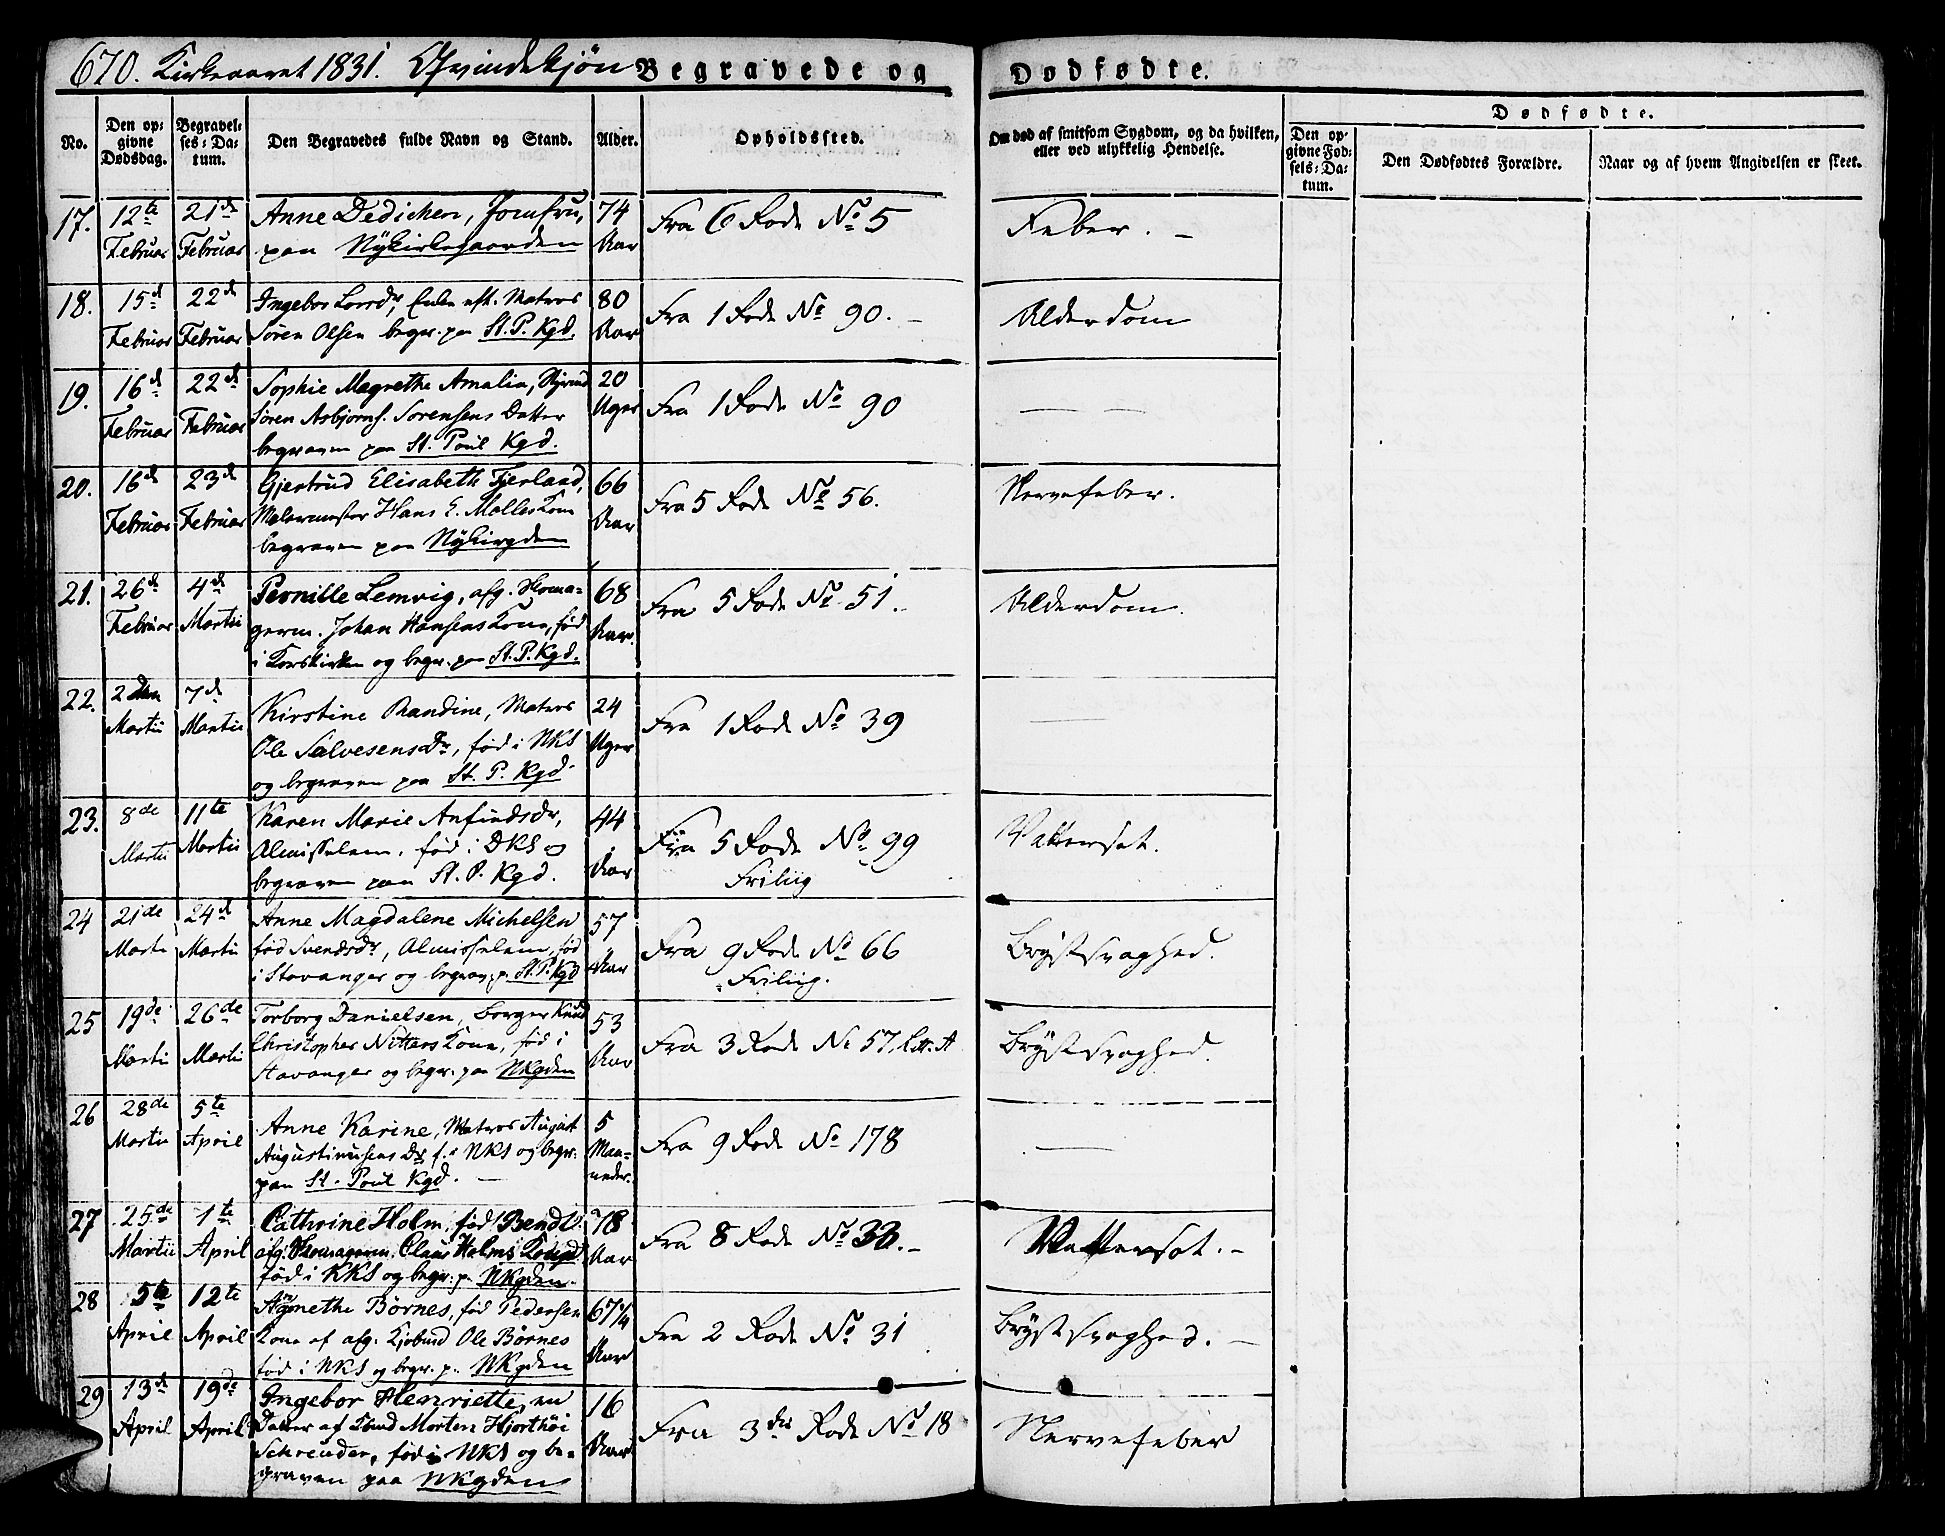 670. Kirkeaaret 1831. Qvindekjøn Begravede og Dødfødte.
No. Den opgivne Dødsdag. Begravelses-Datum. Den Begravedes fulde Navn og Stand. Alder. Opholdssted. Om død af smitsom Sygdom, og da hvilken, eller ved ulykkelig Hendelse. Dødfødte.
Den opgivne Fødsels-Datum. Den Dødfødtes Forældre. Naar og af hvem Angivelsen er skeet.
17. 12te 21de Anne Dedichen, Jomfru, 74 Fra 6 Rode No 5 Feber. -
Februar Februar paa Nykirkegaarden Aar
18. 15d 22d Ingebor Larsdr, Enke eft. Matros 80 Fra 1 Rode No 90. - Alderdom
Februar Februar Søren Olsen begr. paa St. P. Kgd. Aar
19. 16d 22d Sophie Magrethe Amalia, 20 Fra 1 Rode No 90 — —
Februar Februar Søren Asbjørns. Sørensens Datter Uger
begraven paa St. Poul Kgd.
20. 16d 23d Gjertrud Elisabeth Fjerland, 66 Fra 5 Rode No 56. Nervefeber.
Februar Februar Malermester Hans E. Møllers Kone Aar
begraven paa Nykirgden
21. 26d 4d Pernille Lemvig, afg. Skoma- 68 Fra 5 Rode No 51. Alderdom.
Februar Martii germ. Johan Hansens Kone, fød Aar.
i Korskirken og begr. paa St. P. Kgd.
22. 2den 7d Kirstine Randine, Matros 24 Fra 1 Rode No 39 —
Martii Martii Ole Salvesens Dr, fød i NKS Uger
og begraven paa St. P. Kgd
23. 8de 11te Karen Marie Anfindsdr, 44 Fra 5 Rode No 99 Vattersot.
Martii Martii Almisselem, fød i DKS og Aar Friliig
begraven paa St. P. Kgd.
24 21de 24d Anne Magdalene Michelsen 57 Fra 9 Rode No 66 Brystsvaghed.
Martii Martii fød Svendsdr, Almisselem, fød Aar Friliig.
i Stavanger og begrav: p. St. P. Kgd
25 19de 26de Torborg Danielsen, Borger Knud 53 Fra 3 Rode No 57, Litt. A Brystsvaghed.
Martii Martii Christopher Nitters Kone, fød i Aar
Stavanger og begr. paa NKgden
26 28de 5te Anne Karine, Matros August 5 Fra 9 Rode No 178 —
Martii April Augustinusens Dr f. i NKS og begr: Maa-
paa St. Poul Kgd. - neder.
27 25de 1te Cathrine Holm, fød Bendt 78 Fra 8 Rode No 33. - Vattersot. -
Martii April afg. Skomagerm. Claus Holms Kone Aar
fød i KKS og begr: p. NKgden.
28 5te 12te Agnethe Børnes, fød Pedersen 67 1/4 Fra 2 Rode No 31 Brystsvaghed. -
April April Kone af afg. Kjøbmd Ole Børnes Aar
fød i NKS og begr. p. NKgden
29 13d 19de Ingebor Henriette, en 16 Fra 3die Rode No 18 Nervefeber
April April Datter af Morten Hjorthøi Aar
Schreuder, fød i NKS og be-
graven paa NKgden